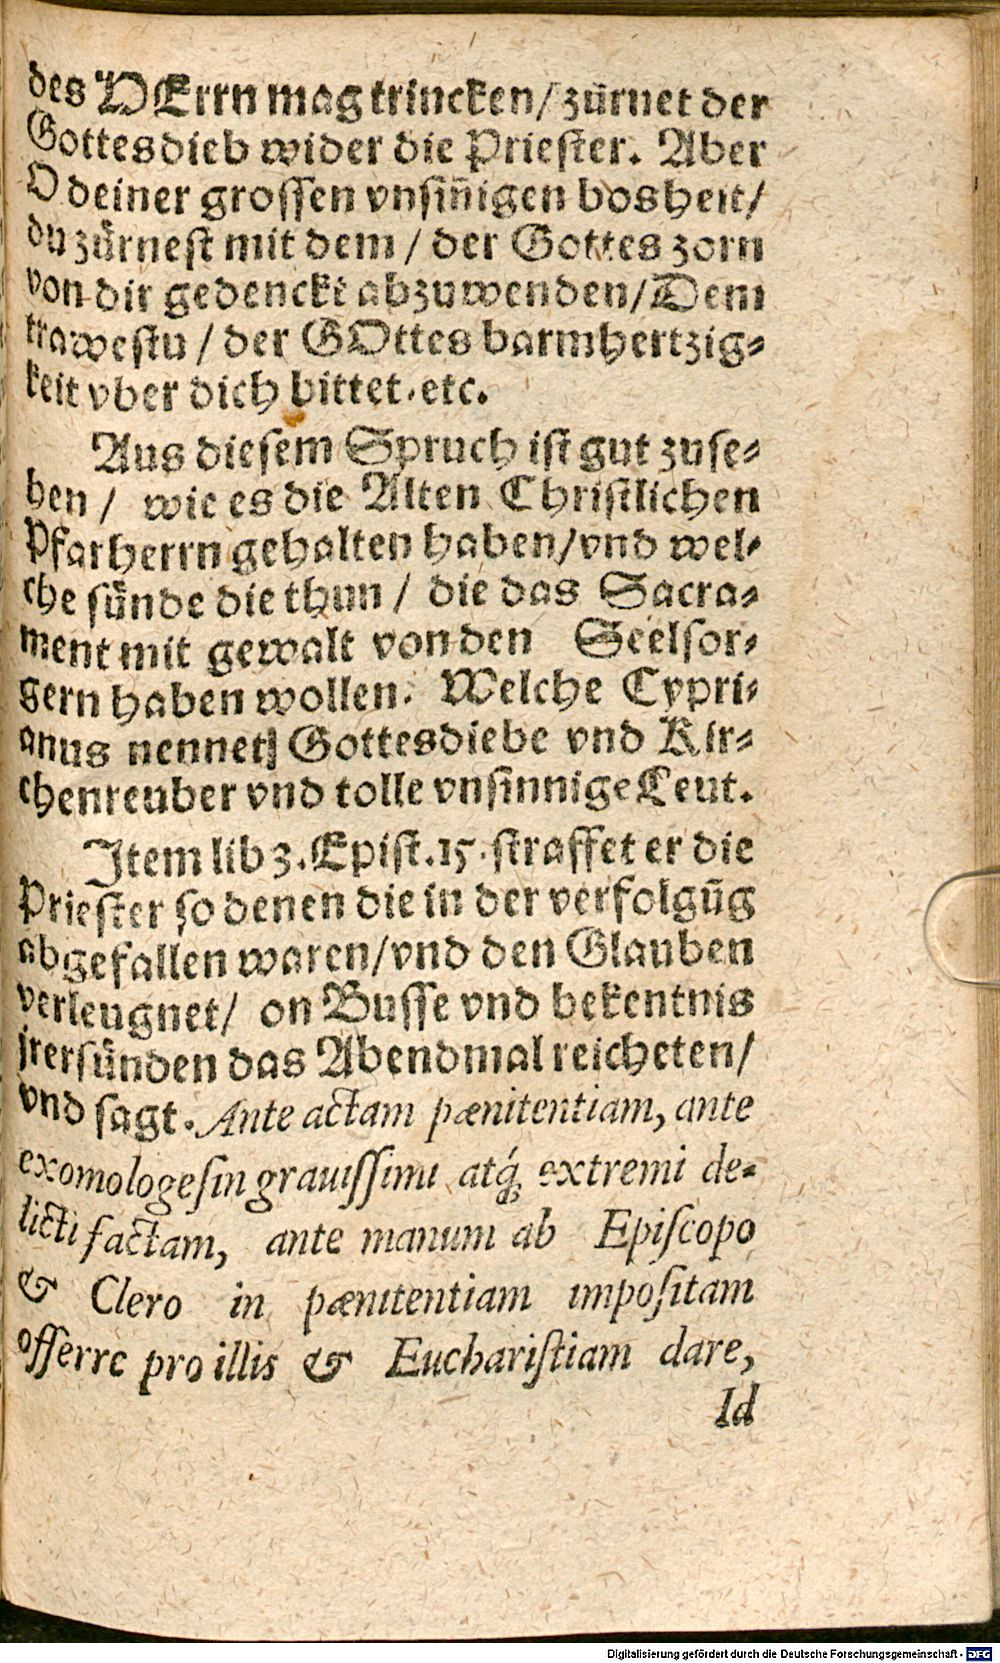 des HErrn mag trincken/ zürnet der
Gottesdieb wider die Priester. Aber
O deiner grossen vnsiñigen bosheit/
du zürnest mit dem / der Gottes zorn
von dir gedenckt abzuwenden/ Dem
trawestu / der GOttes barmhertzig-
keit vber dich bittet. etc.
Aus diesem Spruch ist gut zuse-
hen / wie es die Alten Christlichen
Pfarherrn gehalten haben/ vnd wel-
che sünde die thun / die das Sacra-
ment mit gewalt von den Seelsor-
gern haben wollen. Welche Cypri-
anus nennet Gottesdiebe vnd Kir-
chenreuber vnd tolle vnsinnige Leut.
Item lib 3. Epist. 15. straffet er die
Priester so denen die in der verfolgūg
abgefallen waren/ vnd den Glauben
verleugnet/ on Busse vnd bekentnis
jrer sünden das Abendmal reicheten/
vnd sagt. Ante actam pænitentiam, ante
exomologesin grauissimi atq́; extremi de-
licti factam, ante manum ab Episcopo
& Clero in pænitentiam impositam
offerre pro illis & Eucharistiam dare,
Id
Digitalisierung gefördert durch die Deutsche Forschungsgemeinschaft - DFG